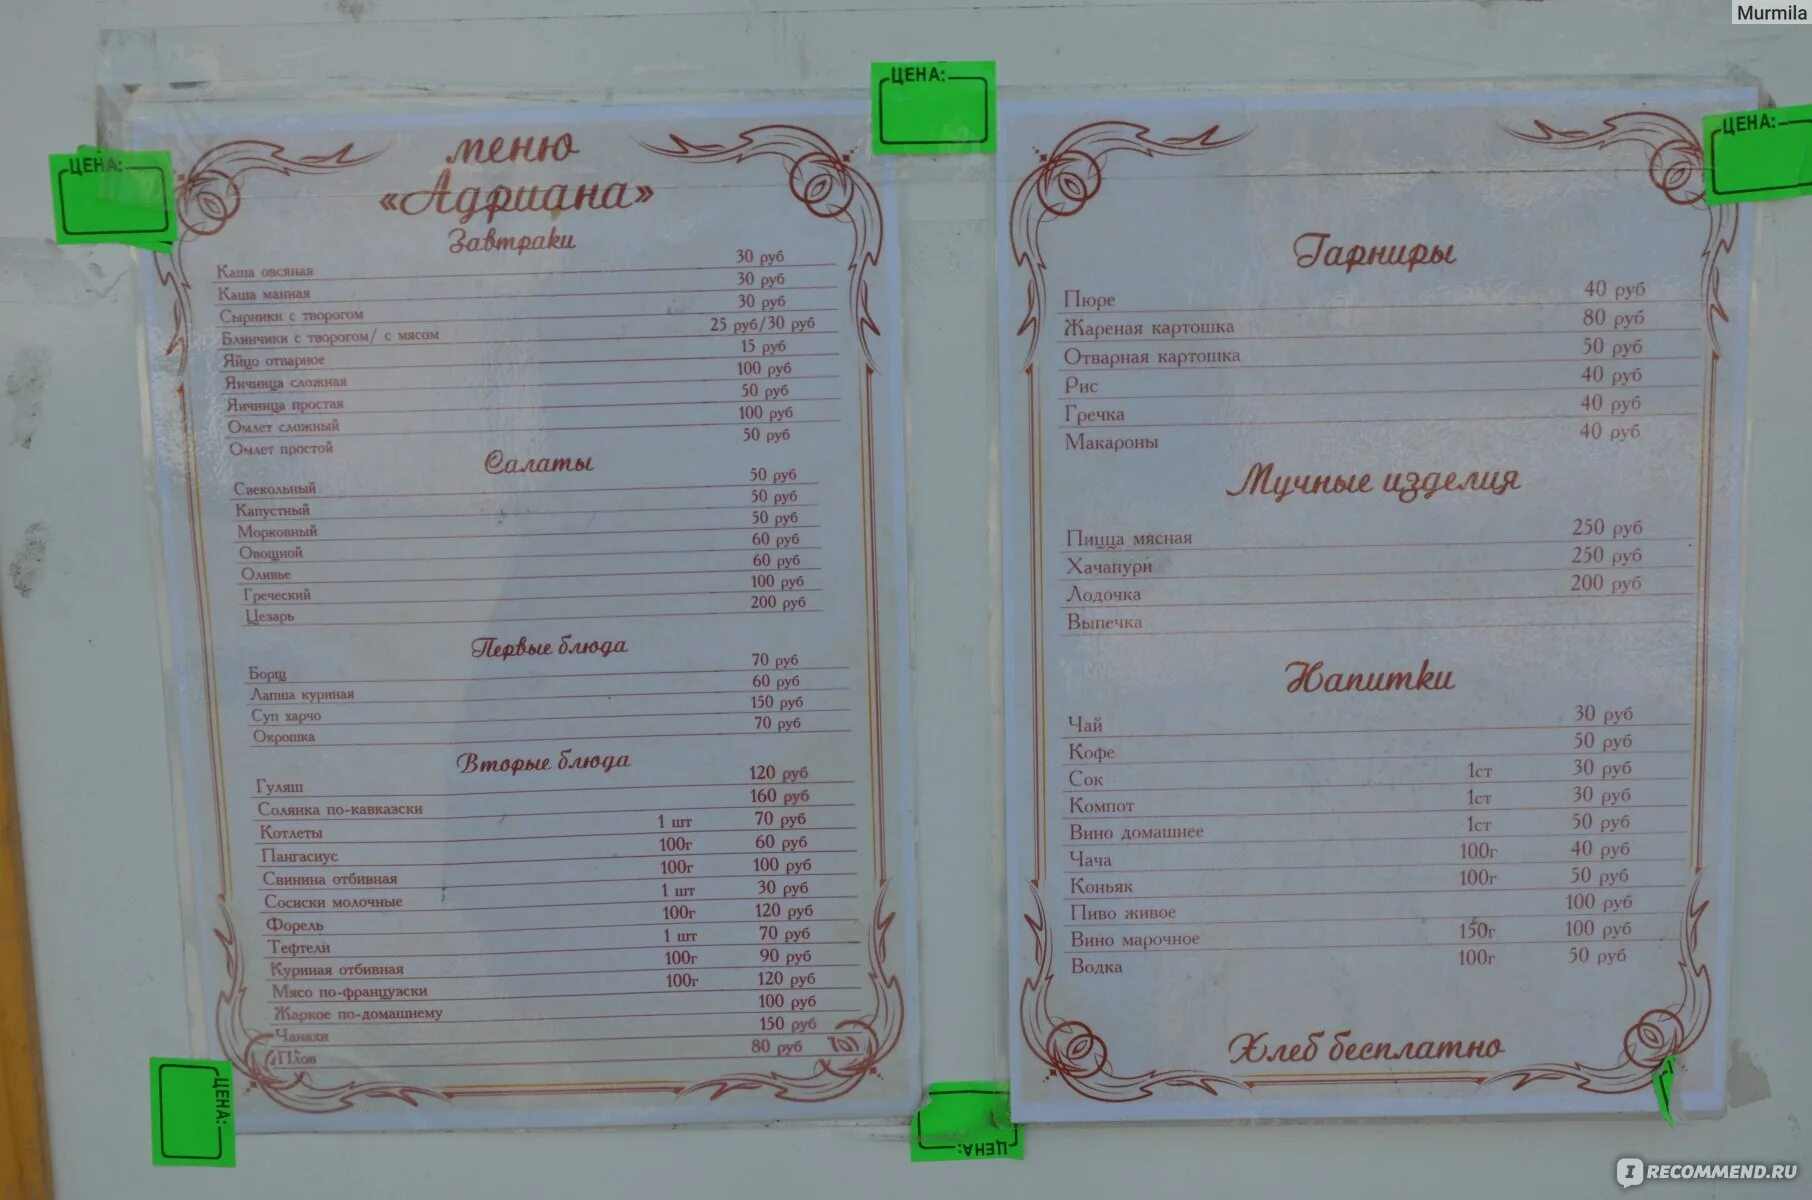 Murmila
ЦЕНА:
ЦЕНА:
ЦЕНА:
меню
«Адриана»
Завтраки
Каша овсяная 30 руб
Каша манная 30 руб
Сырники с творогом 30 руб
Блинчики с творогом/ с мясом 25 руб/30 руб
Яйцо отварное 15 руб
Яичница сложная 100 руб
Яичница простая 50 руб
Омлет сложный 100 руб
Омлет простой 50 руб
Салаты
Свекольный 50 руб
Капустный 50 руб
Морковный 50 руб
Овощной 60 руб
Оливье 60 руб
Греческий 100 руб
Цезарь 200 руб
Первые блюда
Борщ 70 руб
Лапша куриная 60 руб
Суп харчо 150 руб
Окрошка 70 руб
Вторые блюда
Гуляш 120 руб
Солянка по-кавказски 160 руб
Котлеты 1 шт 70 руб
Пангасиус 100г 60 руб
Свинина отбивная 100г 100 руб
Сосиски молочные 1 шт 30 руб
Форель 100г 120 руб
Тефтели 1 шт 70 руб
Куриная отбивная 100г 90 руб
Мясо по-французски 100г 120 руб
Жаркое по-домашнему 100 руб
Чанахи 150 руб
Плов 80 руб
Гарниры
Пюре 40 руб
Жареная картошка 80 руб
Отварная картошка 50 руб
Рис 40 руб
Гречка 40 руб
Макароны 40 руб
Мучные изделия
Пицца мясная 250 руб
Хачапури 250 руб
Лодочка 200 руб
Выпечка
Напитки
Чай 30 руб
Кофе 50 руб
Сок 1ст 30 руб
Компот 1ст 30 руб
Вино домашнее 1ст 50 руб
Чача 100г 40 руб
Коньяк 100г 50 руб
Пиво живое 100 руб
Вино марочное 150г 100 руб
Водка 100г 50 руб
Хлеб бесплатно
ЦЕНА:
ЦЕНА:
IRECOMMEND.RU